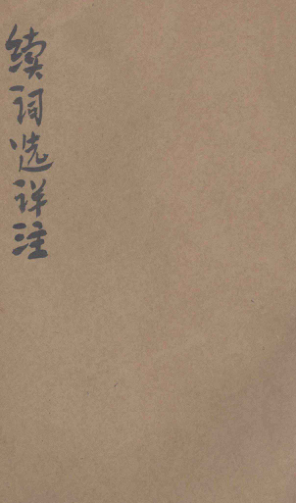 续词选详注